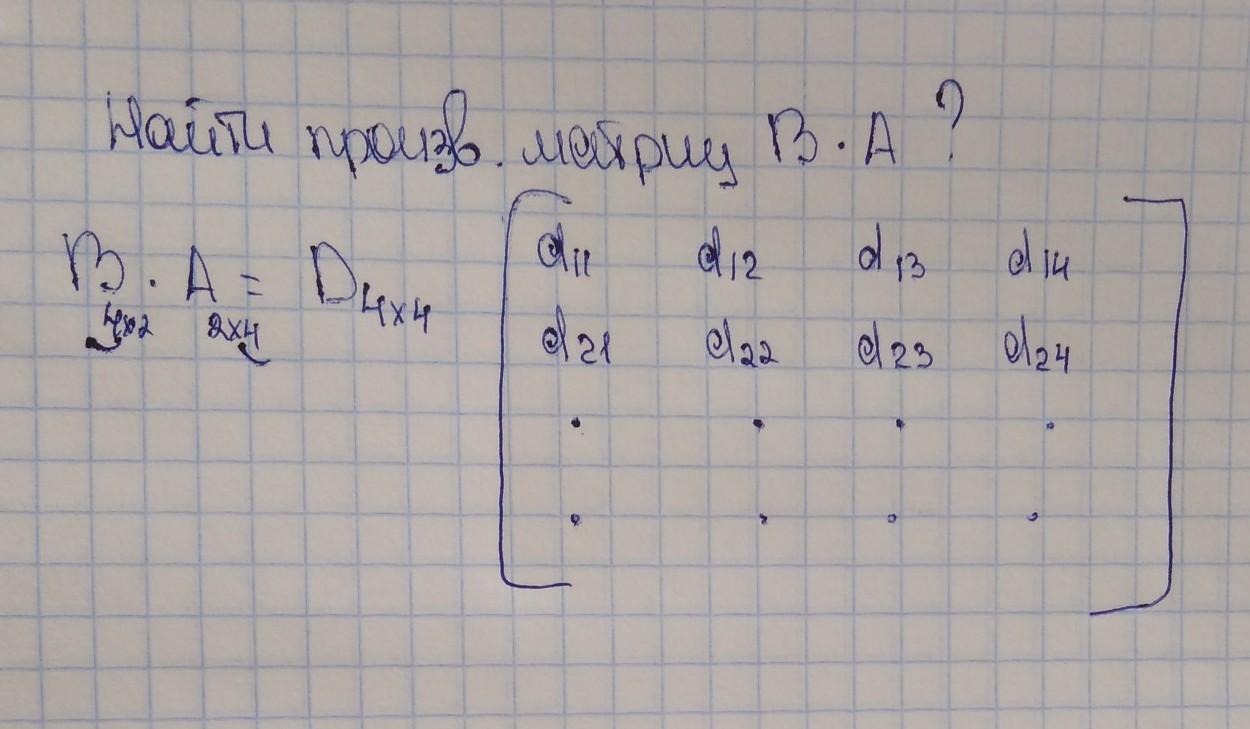 Найти произв. матриц B · A ?
B · A = D₄ₓ₄
4x2 2x4
d₁₁ d₁₂ d₁₃ d₁₄
d₂₁ d₂₂ d₂₃ d₂₄
. . . .
. . . .